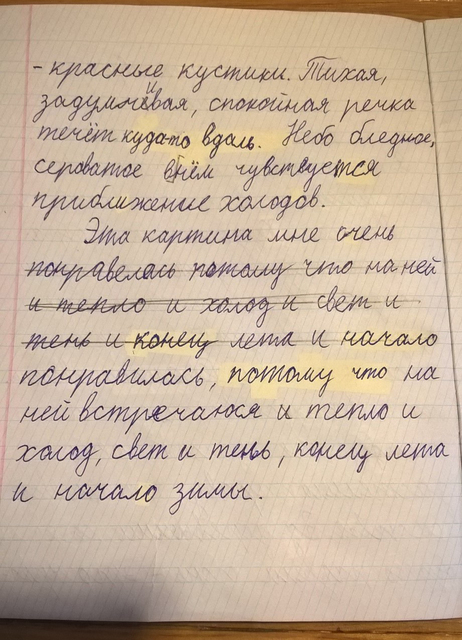 - красные кустики. Тихая,
задумчивая, спокойная речка
течёт куда-то вдаль. Небо бледное,
сероватое внём чувствуется
приближение холодов.
Эта картина мне очень
понравелась потому что на ней
и тепло и холод и свет и
тень и конец лета и начало
понравилась, потому что на
ней встречаюся и тепло и
холод, свет и тень, конец лета
и начало зимы.